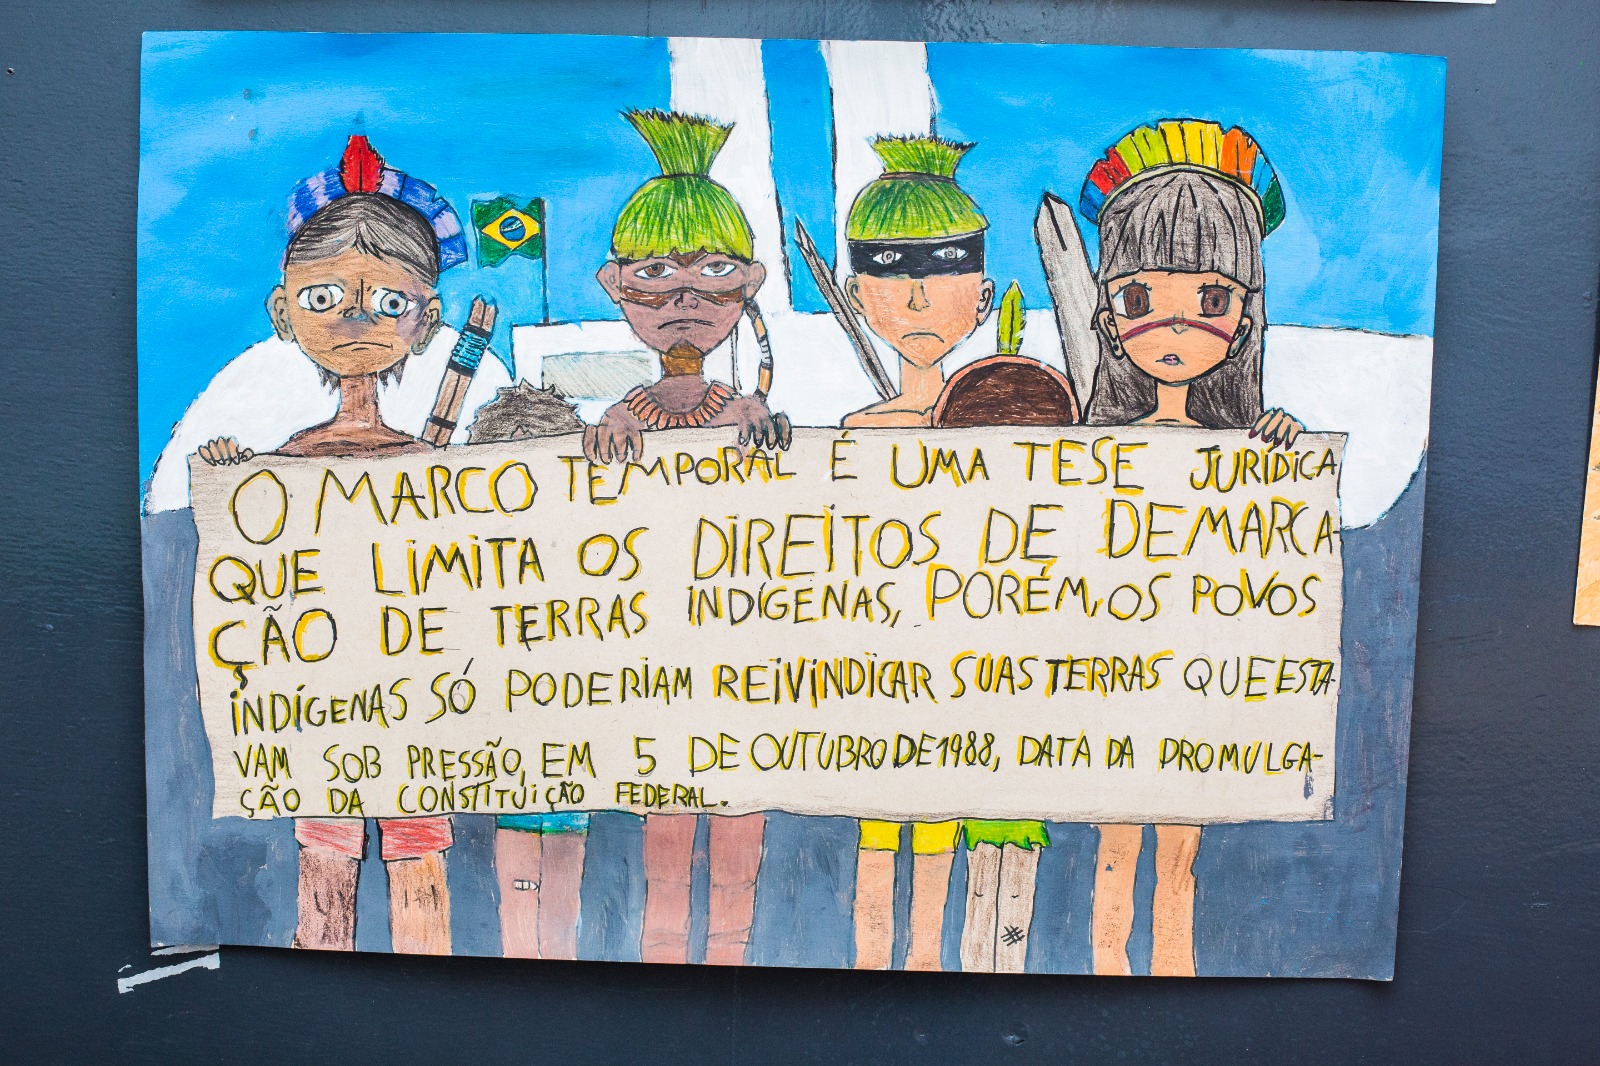 O MARCO TEMPORAL É UMA TESE JURÍDICA
QUE LIMITA OS DIREITOS DE DEMARCA-
ÇÃO DE TERRAS INDÍGENAS, PORÉM, OS POVOS
INDÍGENAS SÓ PODERIAM REIVINDICAR SUAS TERRAS QUE ESTA-
VAM SOB PRESSÃO, EM 5 DE OUTUBRO DE 1988, DATA DA PROMULGA-
ÇÃO DA CONSTITUIÇÃO FEDERAL.